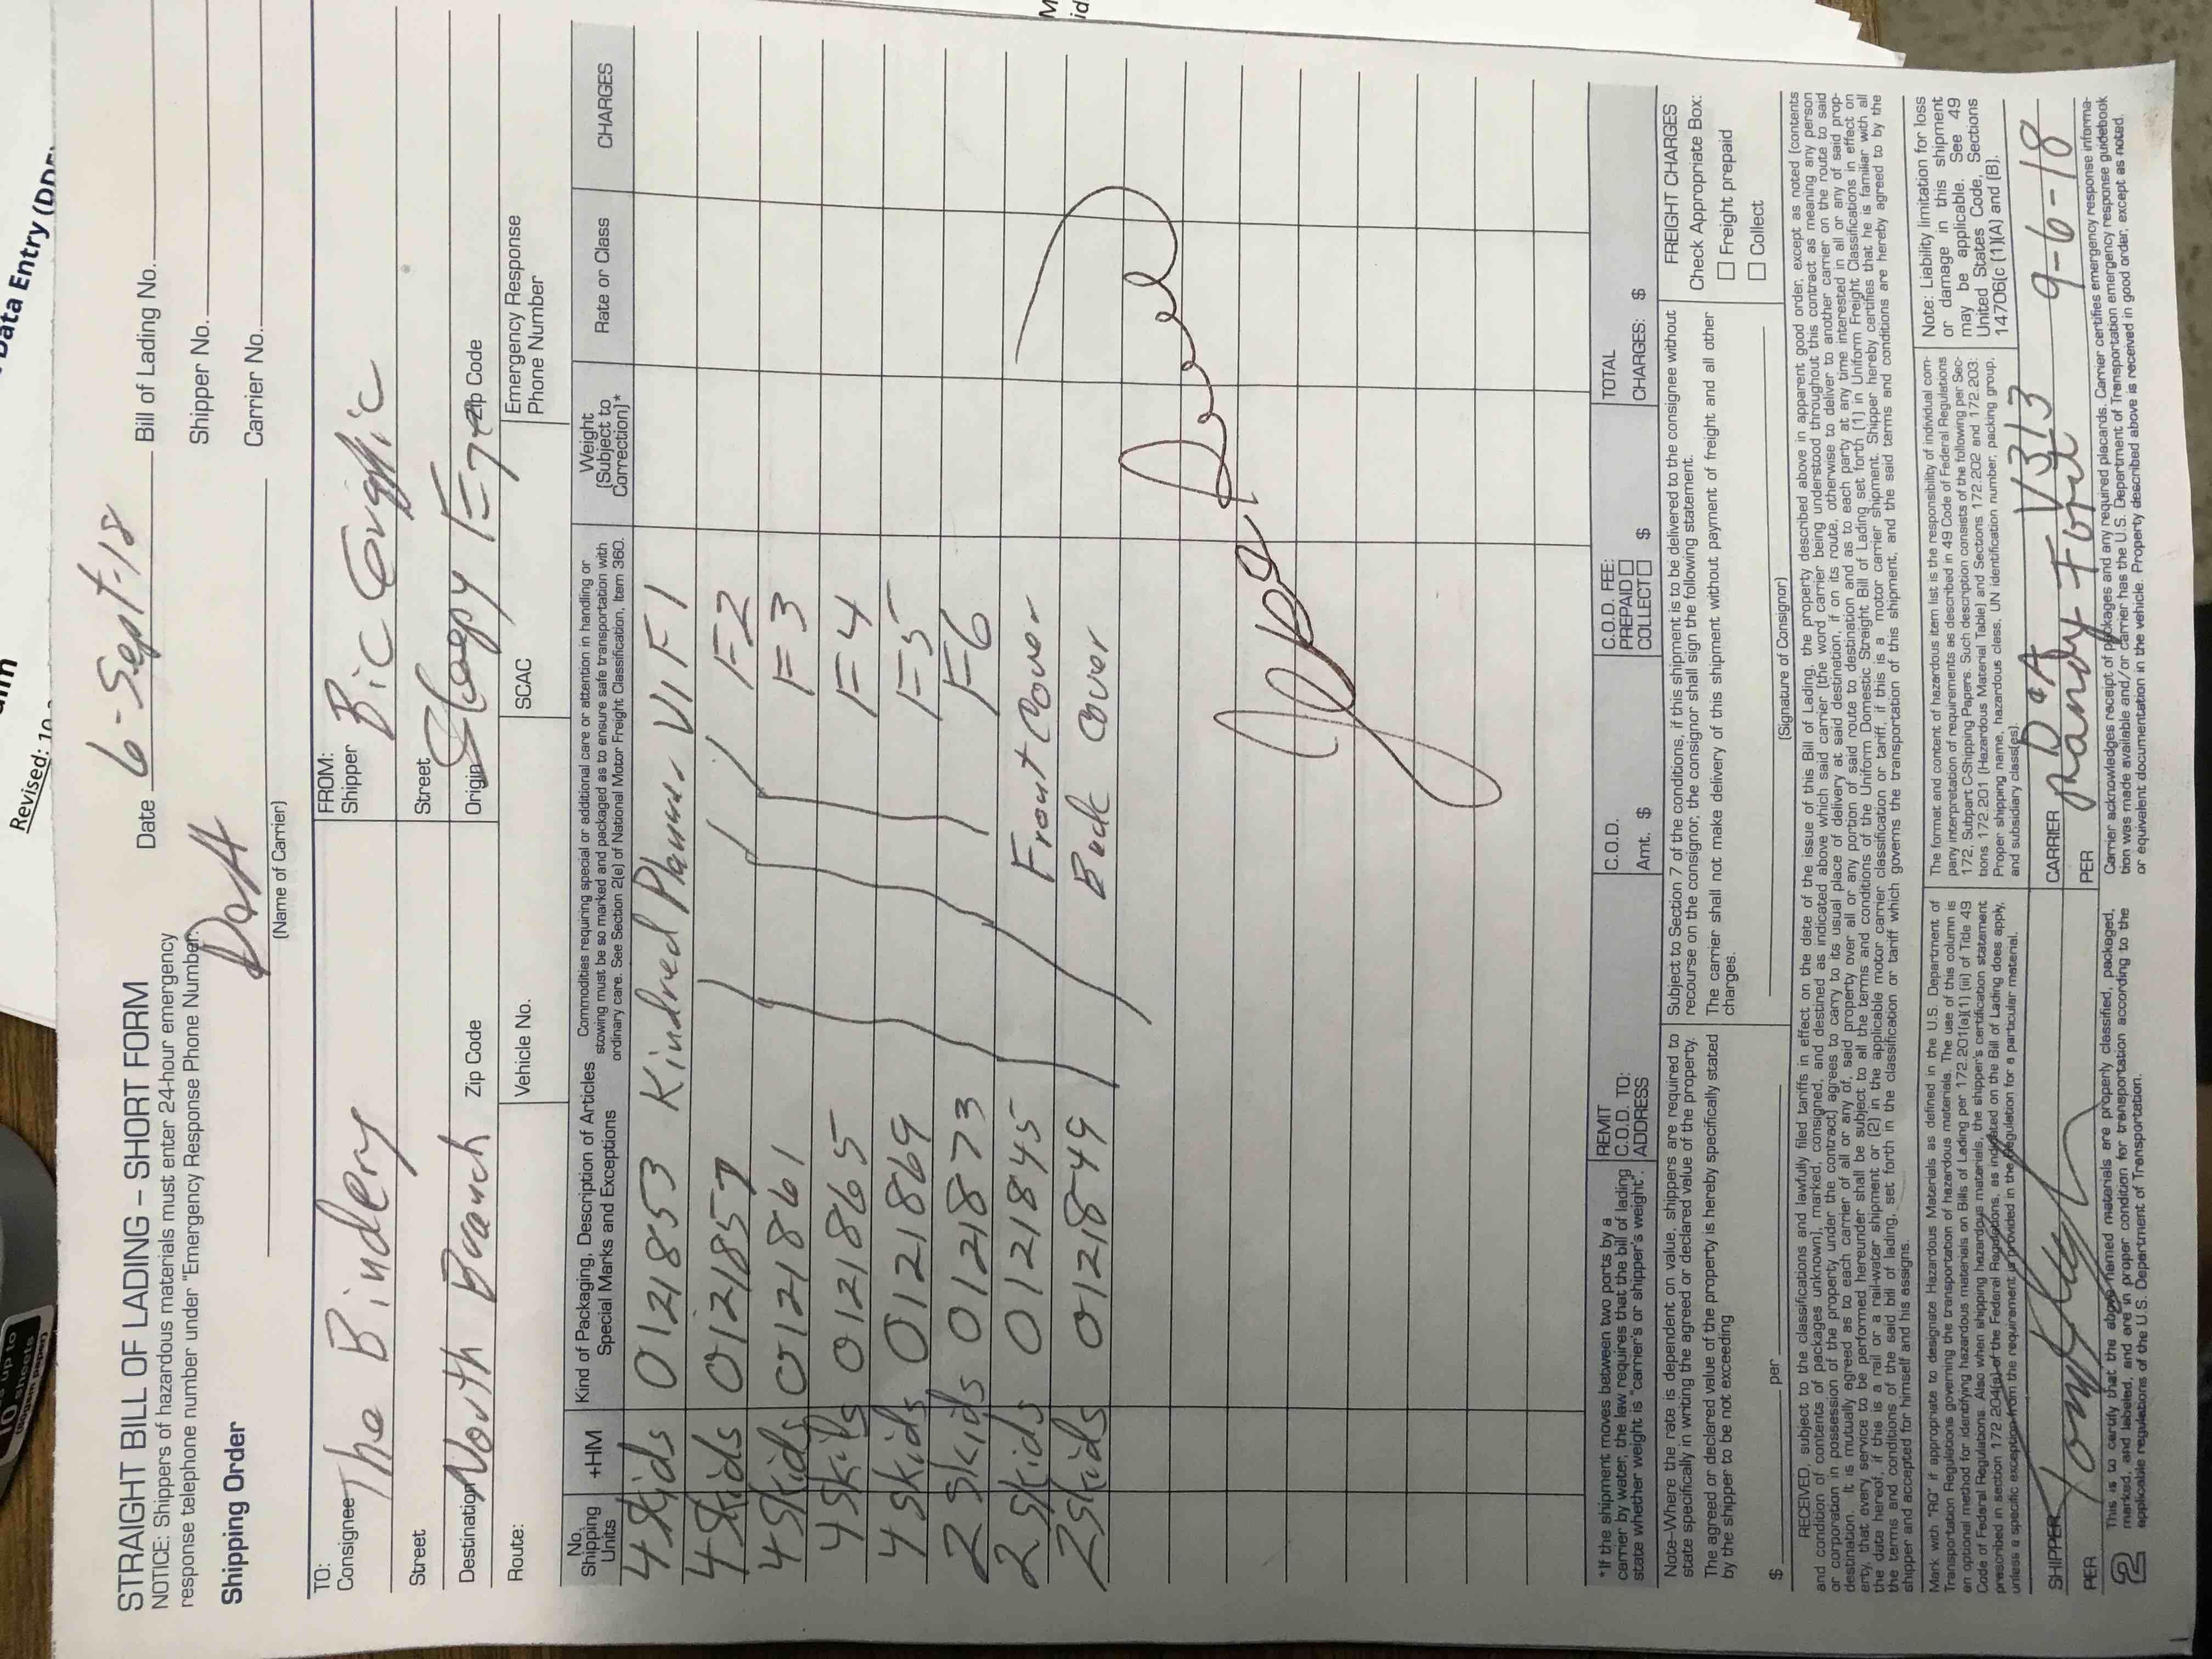 Data Entry (DDF
Revised: 10
STRAIGHT BILL OF LADING – SHORT FORM
NOTICE: Shippers of hazardous materials must enter 24-hour emergency
response telephone number under "Emergency Response Phone Number."
Shipping Order
Date 6-Sept-18
Bill of Lading No.
Shipper No.
Carrier No.
(Name of Carrier)
TO:
Consignee The Bindery
Street
Destination North Branch Zip Code
FROM:
Shipper Bic Graphic
Street
Origin Sleepy Eye Zip Code
Route:
Vehicle No.
SCAC
Emergency Response
Phone Number
No. Shipping Units
+HM
Kind of Packaging, Description of Articles
Special Marks and Exceptions
Commodities requiring special or additional care or attention in handling or
stowing must be so marked and packaged as to ensure safe transportation with
ordinary care. See Section 2(e) of National Motor Freight Classification, Item 360.
Weight
(Subject to
Correction)*
Rate or Class
CHARGES
4 Skids 0121853 Kindred Planner V1 F1
4 Skids 0121857 F2
4 Skids 0121861 F3
4 Skids 0121865 F4
4 Skids 0121869 F5
2 Skids 0121873 F6
2 Skids 0121845 Front Cover
2 Skids 0121849 Back Cover
*If the shipment moves between two ports by a
carrier by water, the law requires that the bill of lading
state whether weight is "carrier's or shipper's weight".
REMIT
C.O.D. TO:
ADDRESS
C.O.D.
Amt. $
C.O.D. FEE:
PREPAID
COLLECT $
TOTAL
CHARGES: $
Note–Where the rate is dependent on value, shippers are required to
state specifically in writing the agreed or declared value of the property.
The agreed or declared value of the property is hereby specifically stated
by the shipper to be not exceeding
$ per
Subject to Section 7 of the conditions, if this shipment is to be delivered to the consignee without
recourse on the consignor, the consignor shall sign the following statement.
The carrier shall not make delivery of this shipment without payment of freight and all other
charges.
(Signature of Consignor)
FREIGHT CHARGES
Check Appropriate Box:
Freight prepaid
Collect
RECEIVED, subject to the classifications and lawfully filed tariffs in effect on the date of the issue of this Bill of Lading, the property described above in apparent good order, except as noted (contents
and condition of contents of packages unknown), marked, consigned, and destined as indicated above which said carrier (the word carrier being understood throughout this contract as meaning any person
or corporation in possession of the property under the contract) agrees to carry to its usual place of delivery at said destination, if on its route, otherwise to deliver to another carrier on the route to said
destination. It is mutually agreed as to each carrier of all or any of, said property over all or any portion of said route to destination and as to each party at any time interested in all or any of said prop-
erty, that every service to be performed hereunder shall be subject to all the terms and conditions of the Uniform Domestic Straight Bill of Lading set forth (1) in Uniform Freight Classifications in effect on
the date hereof, if this is a rail or a rail-water shipment or (2) in the applicable motor carrier classification or tariff, if this is a motor carrier shipment. Shipper hereby certifies that he is familiar with all
the terms and conditions of the said bill of lading, set forth in the classification or tariff which governs the transportation of this shipment, and the said terms and conditions are hereby agreed to by the
shipper and accepted for himself and his assigns.
Mark with "RQ" if appropriate to designate Hazardous Materials as defined in the U.S. Department of
Transportation Regulations governing the transportation of hazardous materials. The use of this column is
an optional method for identifying hazardous materials on Bills of Lading per 172.201(a)(1) (iii) of Title 49
Code of Federal Regulations. Also when shipping hazardous materials, the shipper's certification statement
prescribed in section 172.204(a) of the Federal Regulations, as indicated on the Bill of Lading does apply,
unless a specific exception from the requirement is provided in the Regulation for a particular material.
The format and content of hazardous item list is the responsibility of individual com-
pany interpretation of requirements as described in 49 Code of Federal Regulations
172, Subpart C-Shipping Papers. Such description consists of the following per Sec-
tions 172.201 (Hazardous Material Table) and Sections 172.202 and 172.203:
Proper shipping name, hazardous class, UN identification number, packing group,
and subsidiary class(es).
Note: Liability limitation for loss
or damage in this shipment
may be applicable. See 49
United States Code, Sections
14706(c (1)(A) and (B).
SHIPPER
PER
CARRIER D&A V313 9-6-18
PER Randy Ford
2
This is to certify that the above named materials are properly classified, packaged,
marked, and labeled, and are in proper condition for transportation according to the
applicable regulations of the U.S. Department of Transportation.
Carrier acknowledges receipt of packages and any required placards. Carrier certifies emergency response informa-
tion was made available and/or carrier has the U.S. Department of Transportation emergency response guidebook
or equivalent documentation in the vehicle. Property described above is received in good order, except as noted.